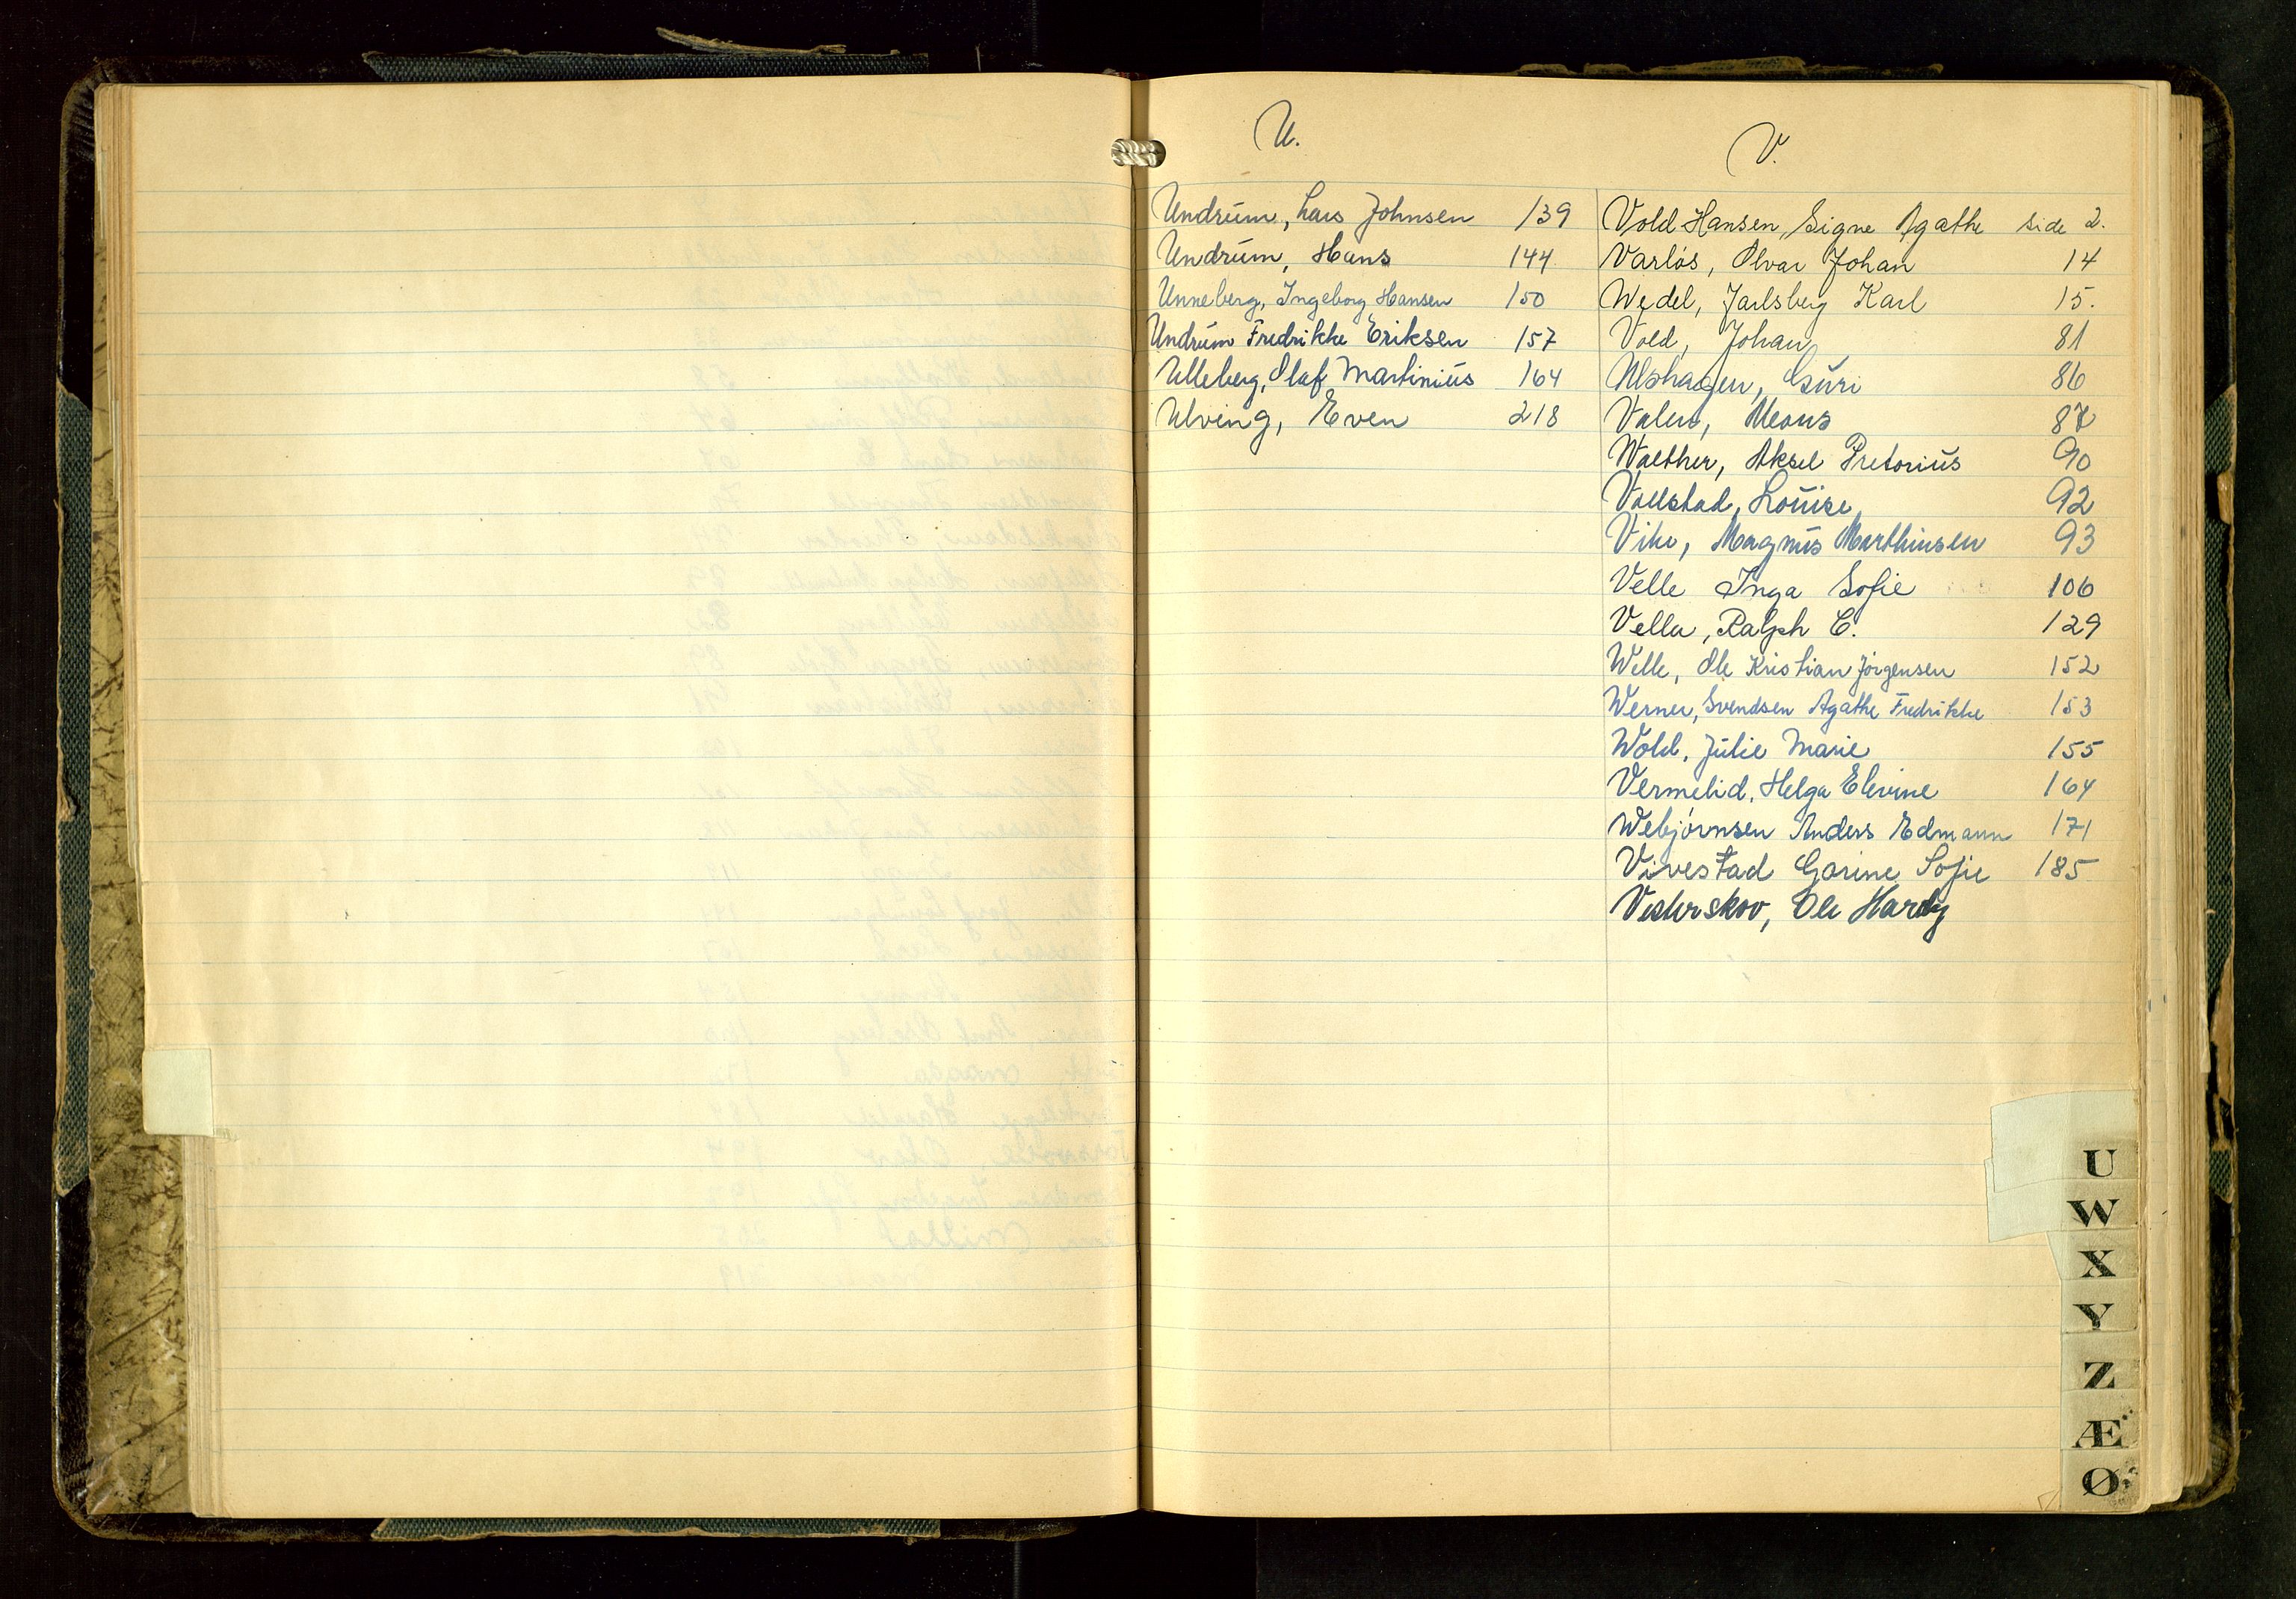 U.
Undrum, Lars Johnsen 139
Undrum, Hans 144
Unneberg, Ingeborg Hansen 150
Undrum Fredrikke Eriksen 157
Ulleberg, Olaf Martinius 164
Ulving, Even 218
V.
Vold Hansen, Signe Agathe side 2.
Varløs, Olvar Johan 14
Wedel, Jarlsberg Karl 15.
Vold, Johan 81
Ulshagen, Guri 86
Valen, Means 87
Walther, Aksel Pretorius 90
Vallstad, Louise 92
Vike, Magnus Marthinsen 93
Velle Inga Sofie 106
Vella, Ralph C. 129
Welle, Ole Kristian Jørgensen 152
Werner, Svendsen Agathe Fredrikke 153
Wold, Julie Marie 155
Vermelid, Helga Elevine 164
Webjørnsen Anders Edmann 171
Vivestad Gorine Sofie 185
Vesterskov, Ole Hardy
U
W
X
Y
Z
Æ
Ø